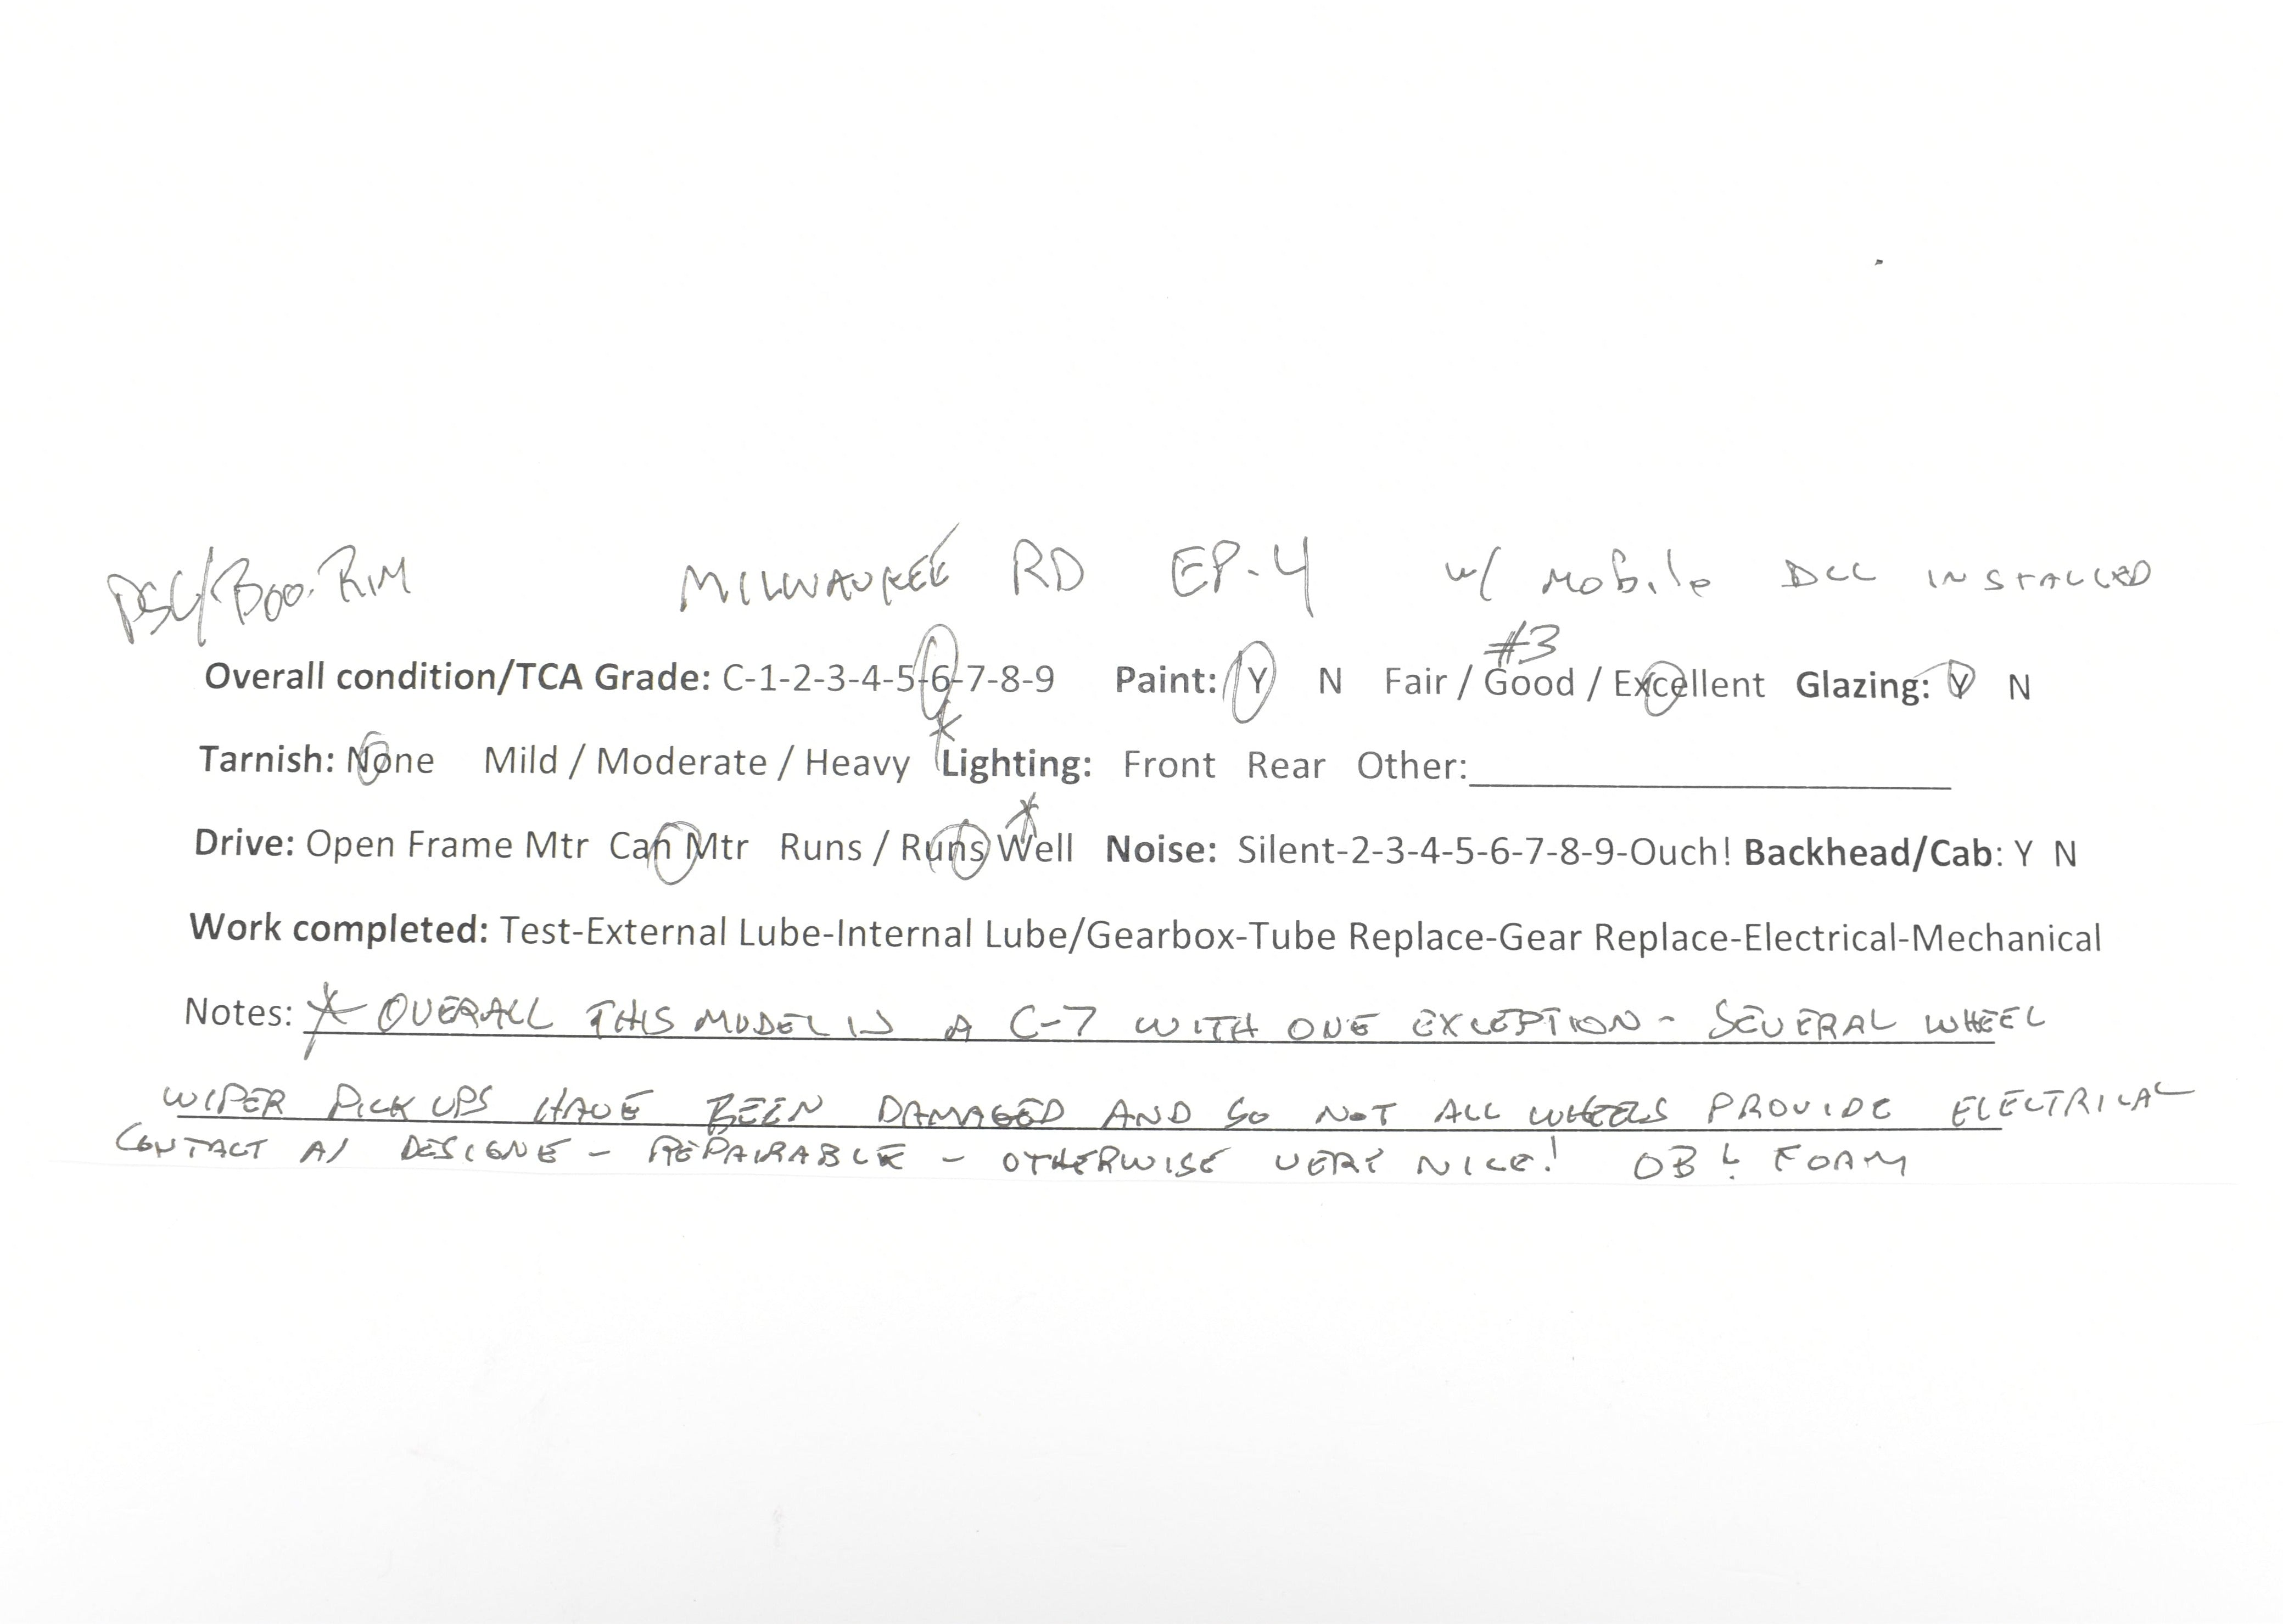 PSC/Boo.Rim MILWAUKEE RD EP-4 w/ Mobile DCC INSTALLED
#3
Overall condition/TCA Grade: C-1-2-3-4-5-6-7-8-9 Paint: Y N Fair / Good / Excellent Glazing: Y N
Tarnish: None Mild / Moderate / Heavy *Lighting: Front Rear Other:
Drive: Open Frame Mtr Can Mtr Runs / Runs Well * Noise: Silent-2-3-4-5-6-7-8-9-Ouch! Backhead/Cab: Y N
Work completed: Test-External Lube-Internal Lube/Gearbox-Tube Replace-Gear Replace-Electrical-Mechanical
Notes: * OVERALL THIS MODEL IS A C-7 WITH ONE EXCEPTION - SEVERAL WHEEL
WIPER PICK UPS HAVE BEEN DAMAGED AND SO NOT ALL WHEELS PROVIDE ELECTRICAL
CONTACT AS DESIGNE - REPAIRABLE - OTHERWISE VERY NICE! OB & FOAM